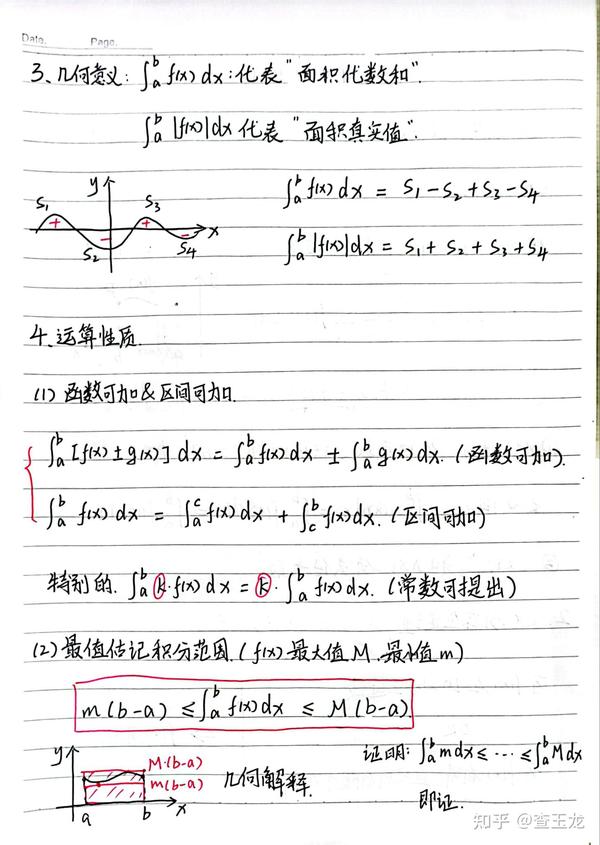 Date. Page.
3、几何意义: ∫ₐᵇ f(x) dx : 代表 "面积代数和".
∫ₐᵇ |f(x)| dx 代表 "面积真实值".
y
S₁ + S₂ − S₃ + S₄ − x
∫ₐᵇ f(x) dx = S₁ − S₂ + S₃ − S₄
∫ₐᵇ |f(x)| dx = S₁ + S₂ + S₃ + S₄
4、运算性质.
(1) 函数可加&区间可加.
∫ₐᵇ [f(x) ± g(x)] dx = ∫ₐᵇ f(x) dx ± ∫ₐᵇ g(x) dx. (函数可加).
∫ₐᵇ f(x) dx = ∫ₐᶜ f(x) dx + ∫꜀ᵇ f(x) dx. (区间可加)
特别的. ∫ₐᵇ k·f(x) dx = k · ∫ₐᵇ f(x) dx. (常数可提出)
(2) 最值估记积分范围. (f(x) 最大值 M、最小值 m)
m(b-a) ≤ ∫ₐᵇ f(x) dx ≤ M(b-a).
y
M·(b-a)
m(b-a)
a b x
几何解释.
证明: ∫ₐᵇ m dx ≤ ⋯ ≤ ∫ₐᵇ M dx
即证.
知乎 @查王龙